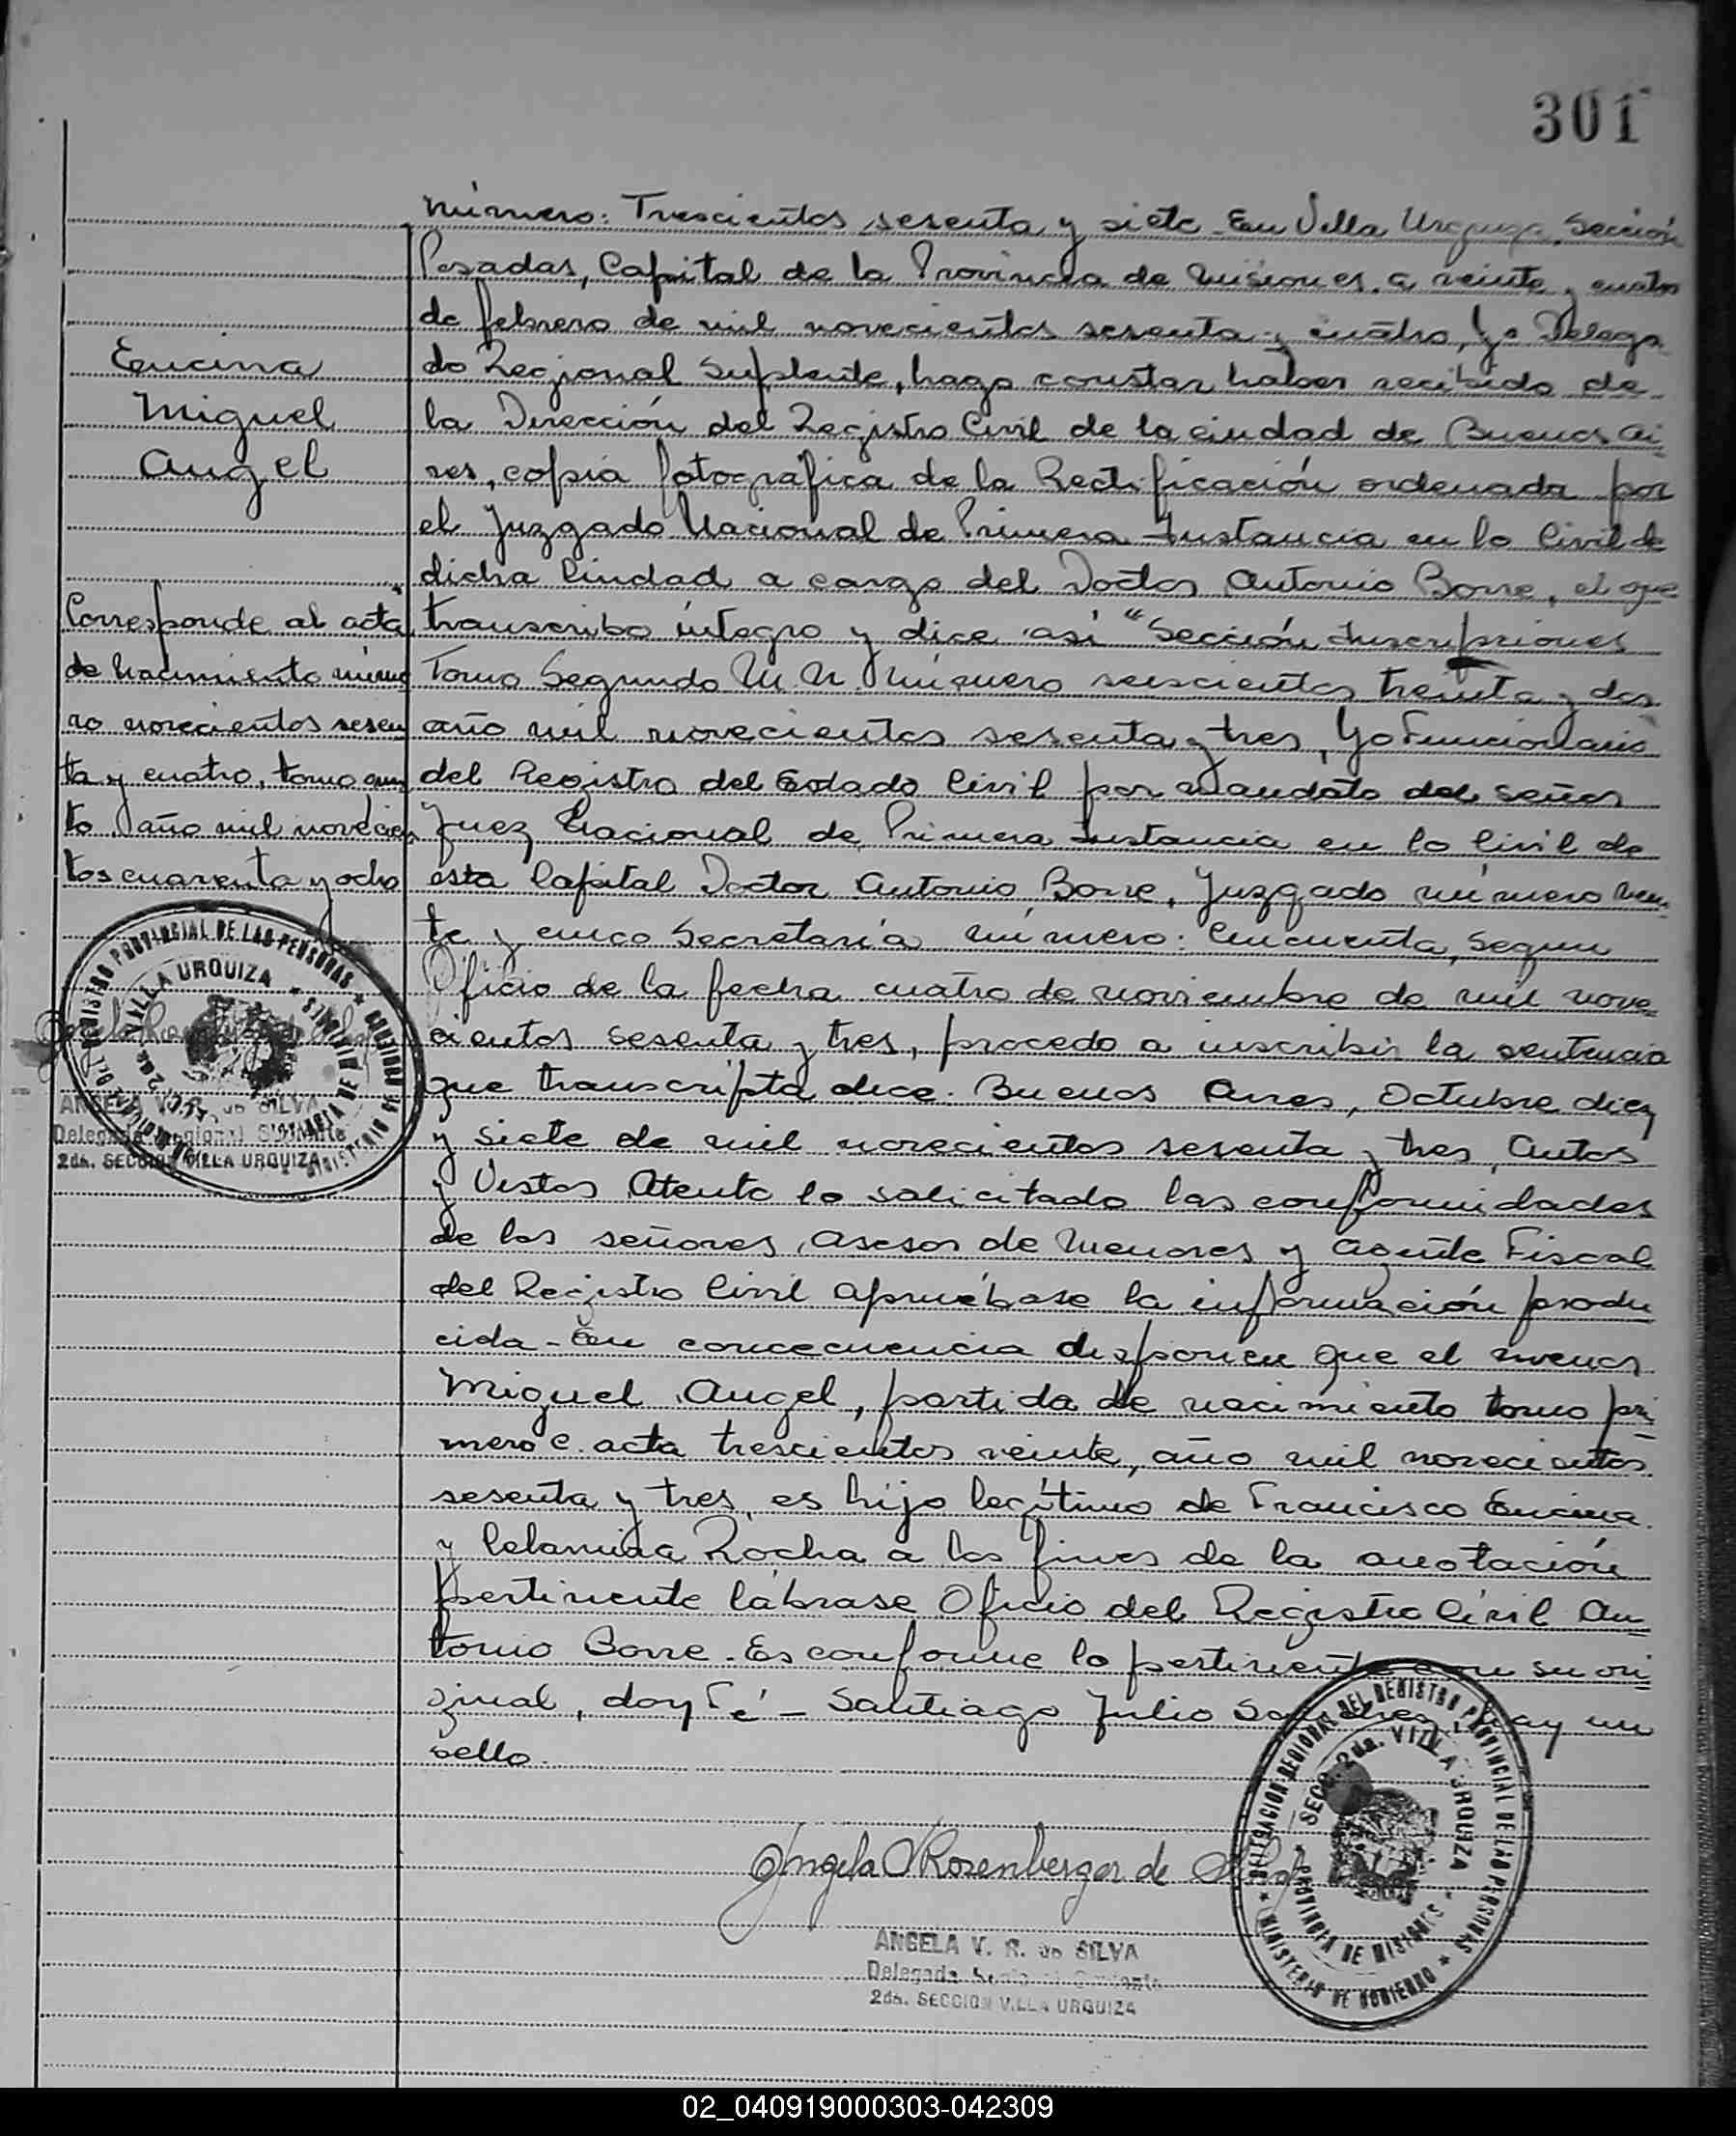 301
número: Trescientos sesenta y siete. En Villa Urquiza, Sección
Posadas, Capital de la Provincia de Misiones, a veinte y cuatro
de febrero de mil novecientos sesenta y cuatro, Yo Delega
do Regional Suplente, hago constar haber recibido de
la Dirección del Registro Civil de la ciudad de Buenos Ai
res, copia fotografica de la Rectificación ordenada por
el Juzgado Nacional de Primera Instancia en lo Civil de
dicha Ciudad a cargo del Doctor Antonio Borre, el que
transcribo íntegro y dice así "Sección Inscripciones
Tomo Segundo M. N. Número seiscientos treinta y dos
año mil novecientos sesenta y tres, Yo Funcionario
del Registro del Estado Civil por mandato del señor
Juez Nacional de Primera Instancia en lo Civil de
esta Capital Doctor Antonio Borre, Juzgado número vein
te y cinco Secretaría número: Cincuenta, Segun
Oficio de la fecha cuatro de noviembre de mil nove
cientos sesenta y tres, procedo a inscribir la sentencia
que transcripta dice. Buenos Aires, Octubre diez
y siete de mil novecientos sesenta y tres, Autos
y Vistos Atento lo solicitado las conformidades
de los señores Asesor de Menores y Agente Fiscal
del Registro Civil apruébase la información produ
cida - En concecuencia disponen que el menor
Miguel Angel, partida de nacimiento tomo pri
mero C. acta trescientos veinte, año mil novecientos
sesenta y tres, es hijo legítimo de Francisco Encina
y Rocha a los fines de la anotación
pertinente lábrase Oficio del Registro Civil An
tonio Borre. Es conforme lo pertinente con su ori
ginal, doy Fé - Santiago Julio hay un
sello.
Encina
Miguel
Angel
Corresponde al acta
de Nacimiento núme
ro novecientos sesen
ta y cuatro, tomo cuar
to año mil novecien
tos cuarenta y ocho
DELEGACION REGIONAL DEL REGISTRO PROVINCIAL DE LAS PERSONAS
VILLA URQUIZA
PROVINCIA DE MISIONES
MINISTERIO DE GOBIERNO
ANGELA V. R. de SILVA
Delegada Regional Suplente
2da. SECCION VILLA URQUIZA
Angela V Rosenberger de Silva
ANGELA V. R. de SILVA
Delegada Regional Suplente
2da. SECCION VILLA URQUIZA
DELEGACION REGIONAL DEL REGISTRO PROVINCIAL DE LAS PERSONAS
SECC. 2da. VILLA URQUIZA
PROVINCIA DE MISIONES
MINISTERIO DE GOBIERNO
02_040919000303-042309